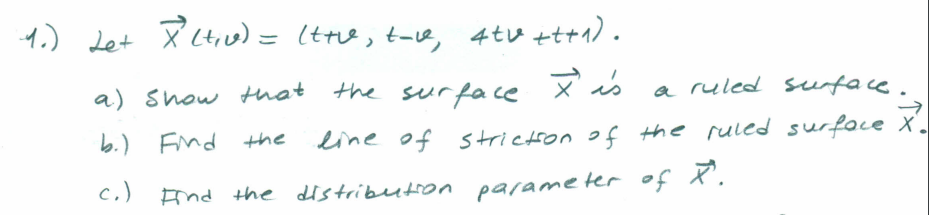 1.) Let X⃗(t,v) = (t+v, t-v, 4tv+t+1).
a) Show that the surface X⃗ is a ruled surface.
b.) Find the line of striction of the ruled surface X⃗.
c.) Find the distribution parameter of X⃗.